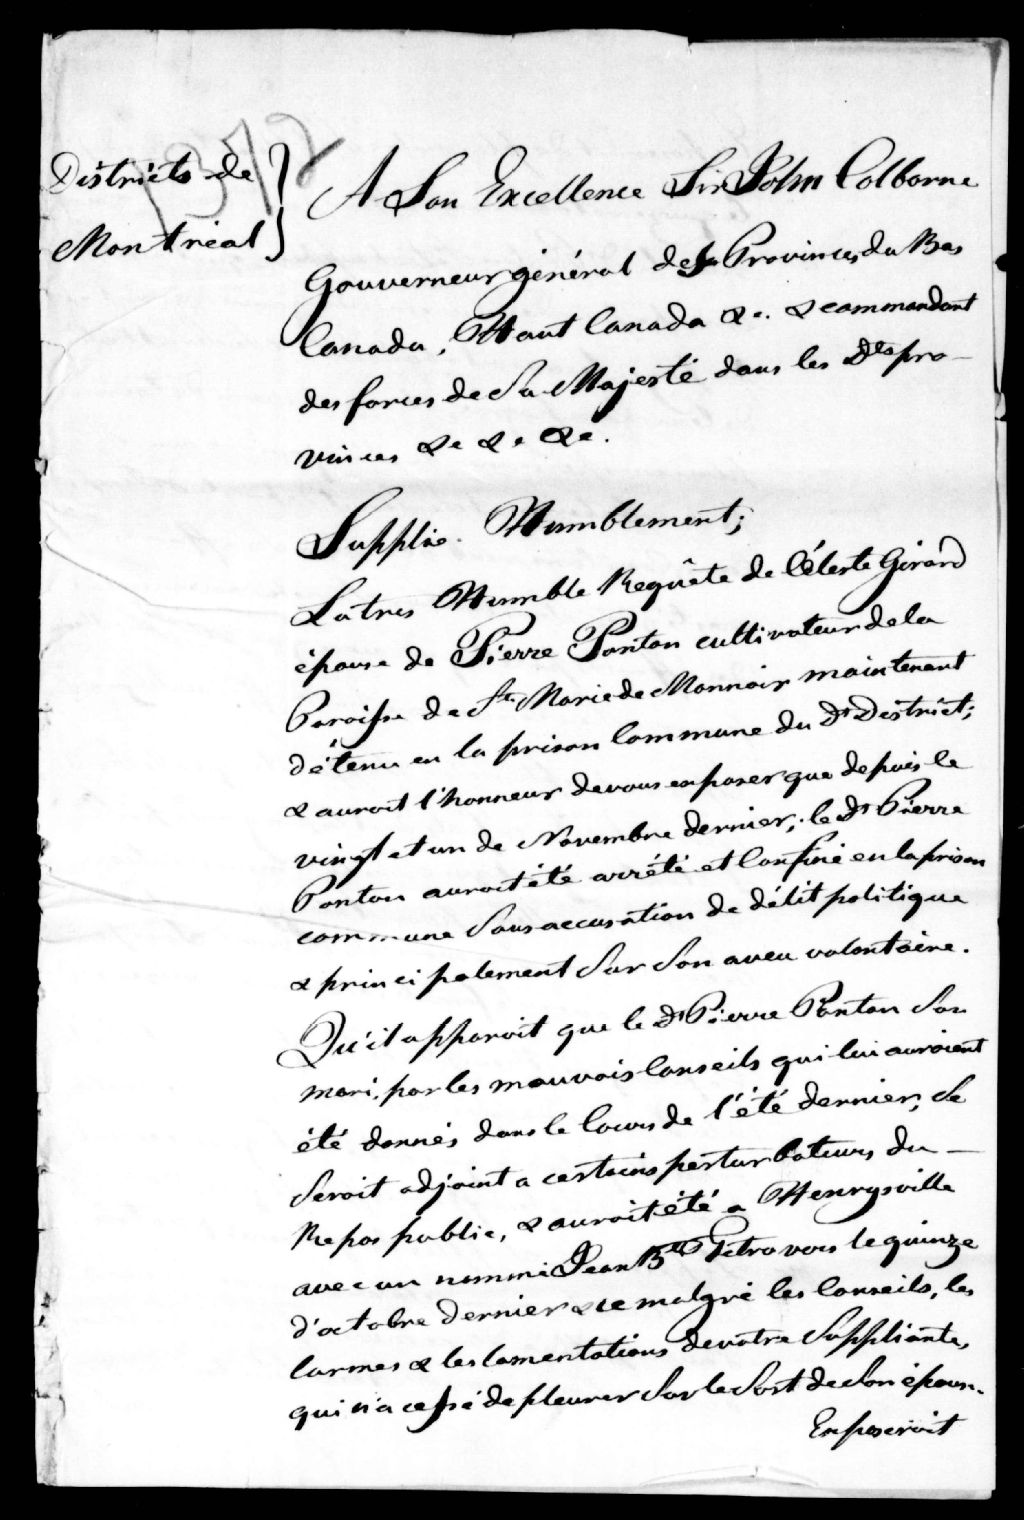 Districts de
Montréal
A Son Excellence Sir John Colborne
Gouverneur général des Provinces du Bas
Canada, Haut Canada &c. & commandant
des forces de Sa Majesté dans les Dtes pro-
vinces &c &c &c.
Supplie Humblement;
La tres Humble Requête de Céleste Girard
épouse de Pierre Ponton cultivateur de la
Paroisse de Ste Marie de Monnoir maintenant
détenu en la prison Commune du Dt District;
& auroit l'honneur de vous exposer que depuis le
vingt et un de Novembre dernier, le Dt Pierre
Ponton auroit été arrêté et Confiné en la prison
commune Sous accusation de délit politique
& principalement Sur Son aveu volontaire.
Qu'il apparoit que le Dt Pierre Ponton Son
mari, par les mauvais Conseils qui lui auroient
été donnés dans le Cours de l'été dernier, Se
Seroit adjoint a certains perturbateurs du -
Repos public, & auroit été a Henrysville
avec un nommé Jean Bte Tetro vers le quinze
d'octobre dernier & ce malgré les Conseils, les
larmes & les lamentations de votre Suppliante,
qui n'a cessé de pleurer Sur le Sort de Son époux.
Exposeroit